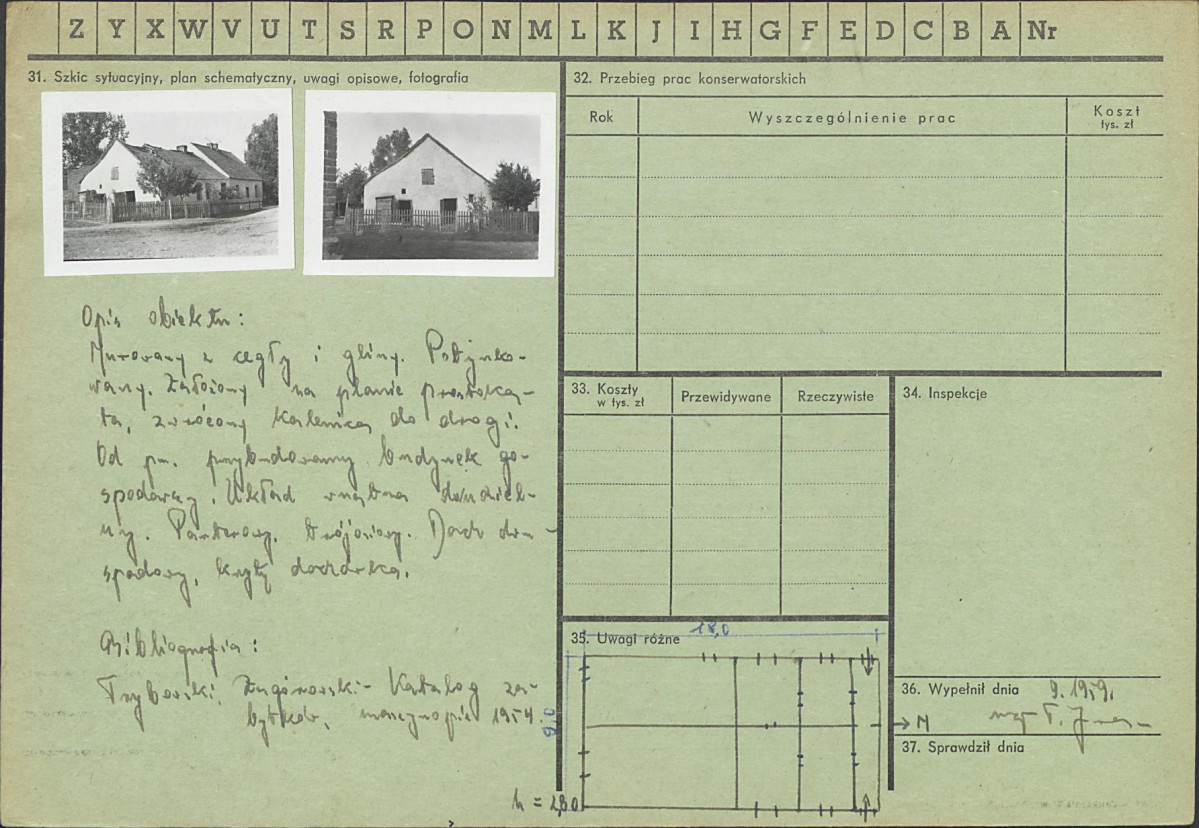 Z Y X W V U T S R P O N M L K J I H G F E D C B A Nr
31. Szkic sytuacyjny, plan schematyczny, uwagi opisowe, fotografia
Opis obiektu:
Murowany z cegły i gliny. Potynko-
wany. Założony na planie prostoką-
ta, zwrócony kalenicą do drogi.
Od pn. przybudowany budynek go-
spodarczy. Układ wnętrza dwudziel-
ny. Parterowy. Trójosiowy. Dach dwu-
spadowy, kryty dachówką.
Bibliografia:
Katalog za-
bytków, maszynopis 1954.
32. Przebieg prac konserwatorskich
Rok
Wyszczególnienie prac
Koszt
tys. zł
33. Koszty
w tys. zł
Przewidywane
Rzeczywiste
34. Inspekcje
35. Uwagi różne
18,0
9,0
h = 2,80
N
36. Wypełnił dnia 9.1959.
mgr T.
37. Sprawdził dnia